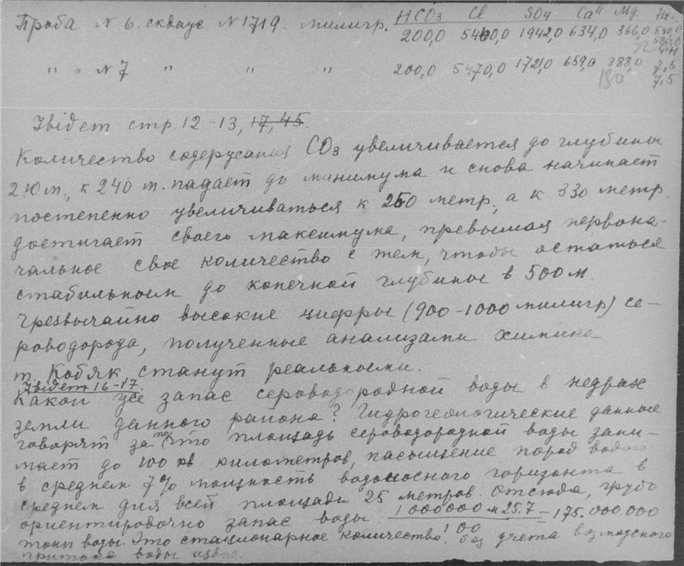 HCO3 Cl SO4 Ca" Mg
Проба N 6. скваж N 1719. милигр. 200,0 5400,0 1942,0 634,0 366,0
" " N 7 " " " 200,0 5470,0 1721,0 659,0 388,0 7,5
130 7,5
Звідет стр 12-13, 17, 45
Количество содержания CO3 увеличивается до глубины
210 м., к 240 м. падает до минимума и снова начинает
постепенно увеличиваться к 260 метр., а к 330 метр.
достигает своего максимума, превышая первона-
чальное свое количество с тем, чтобы остаться
стабильным до конечной глубины в 500 м.
Чрезвычайно высокие цифры (900-1000 милигр) се-
роводорода, полученные анализами химика
т. Кобяк станут реальными.
Звідет 16-17.
Какой же запас сероводородной воды в недрах
земли данного района? Гидрогеологические данные
говорят за то что площадь сероводородной воды зани-
мает до 100 кв километров, насыщение пород водою
в среднем 7% мощность водоносного горизонта в
среднем для всей площади 25 метров. Отсюда, грубо
ориентировочно запас воды 1000000 х 25.7 = 175.000.000
100
тонн воды. Это стационарное количество без учета возможного
притока воды извне.